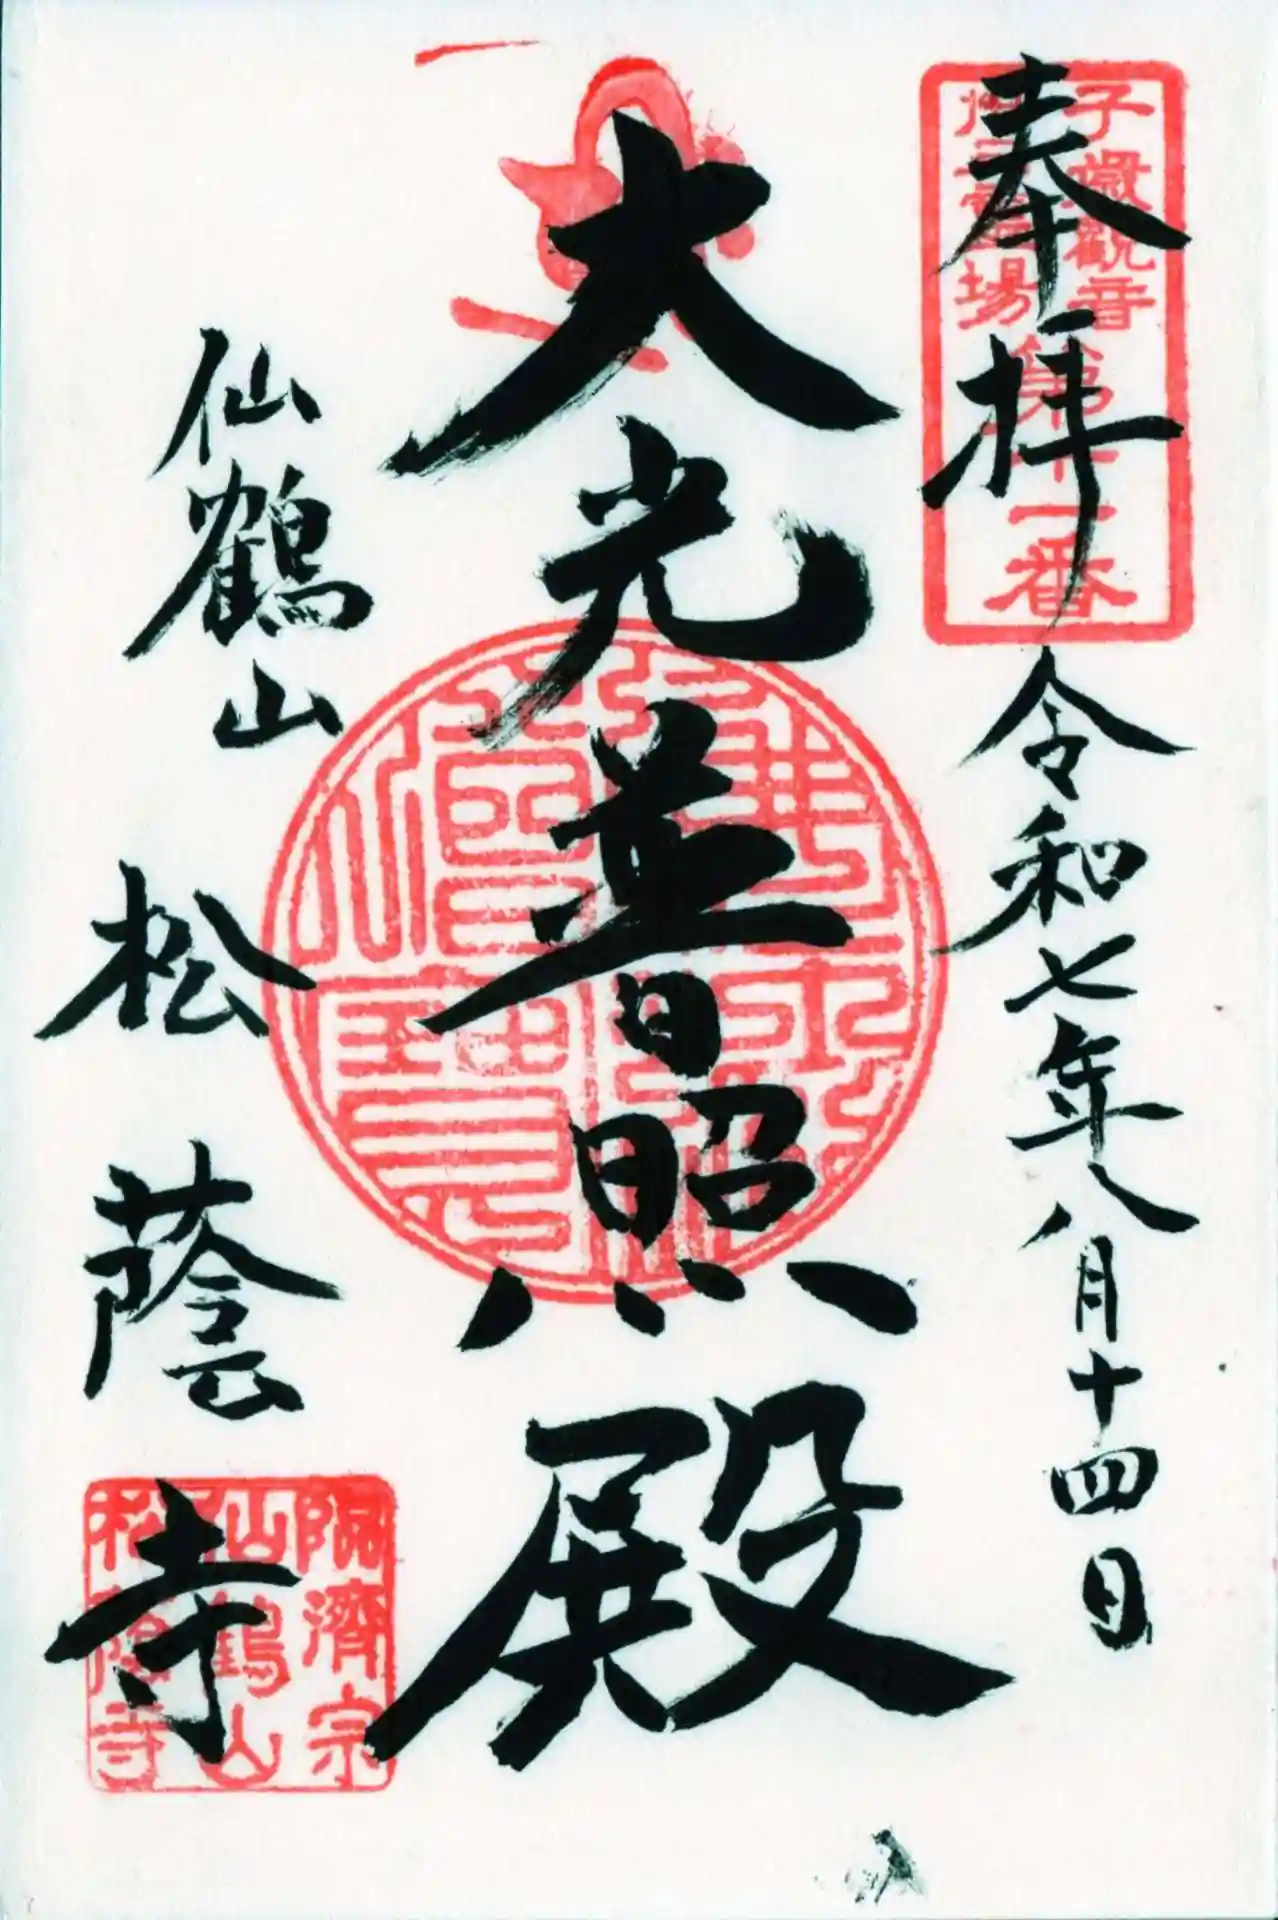 奉拝 令和七年八月十四日
観音
場
第十一番
大光普照殿
仙鶴山
松蔭寺
臨濟宗
仙鶴山
松蔭寺